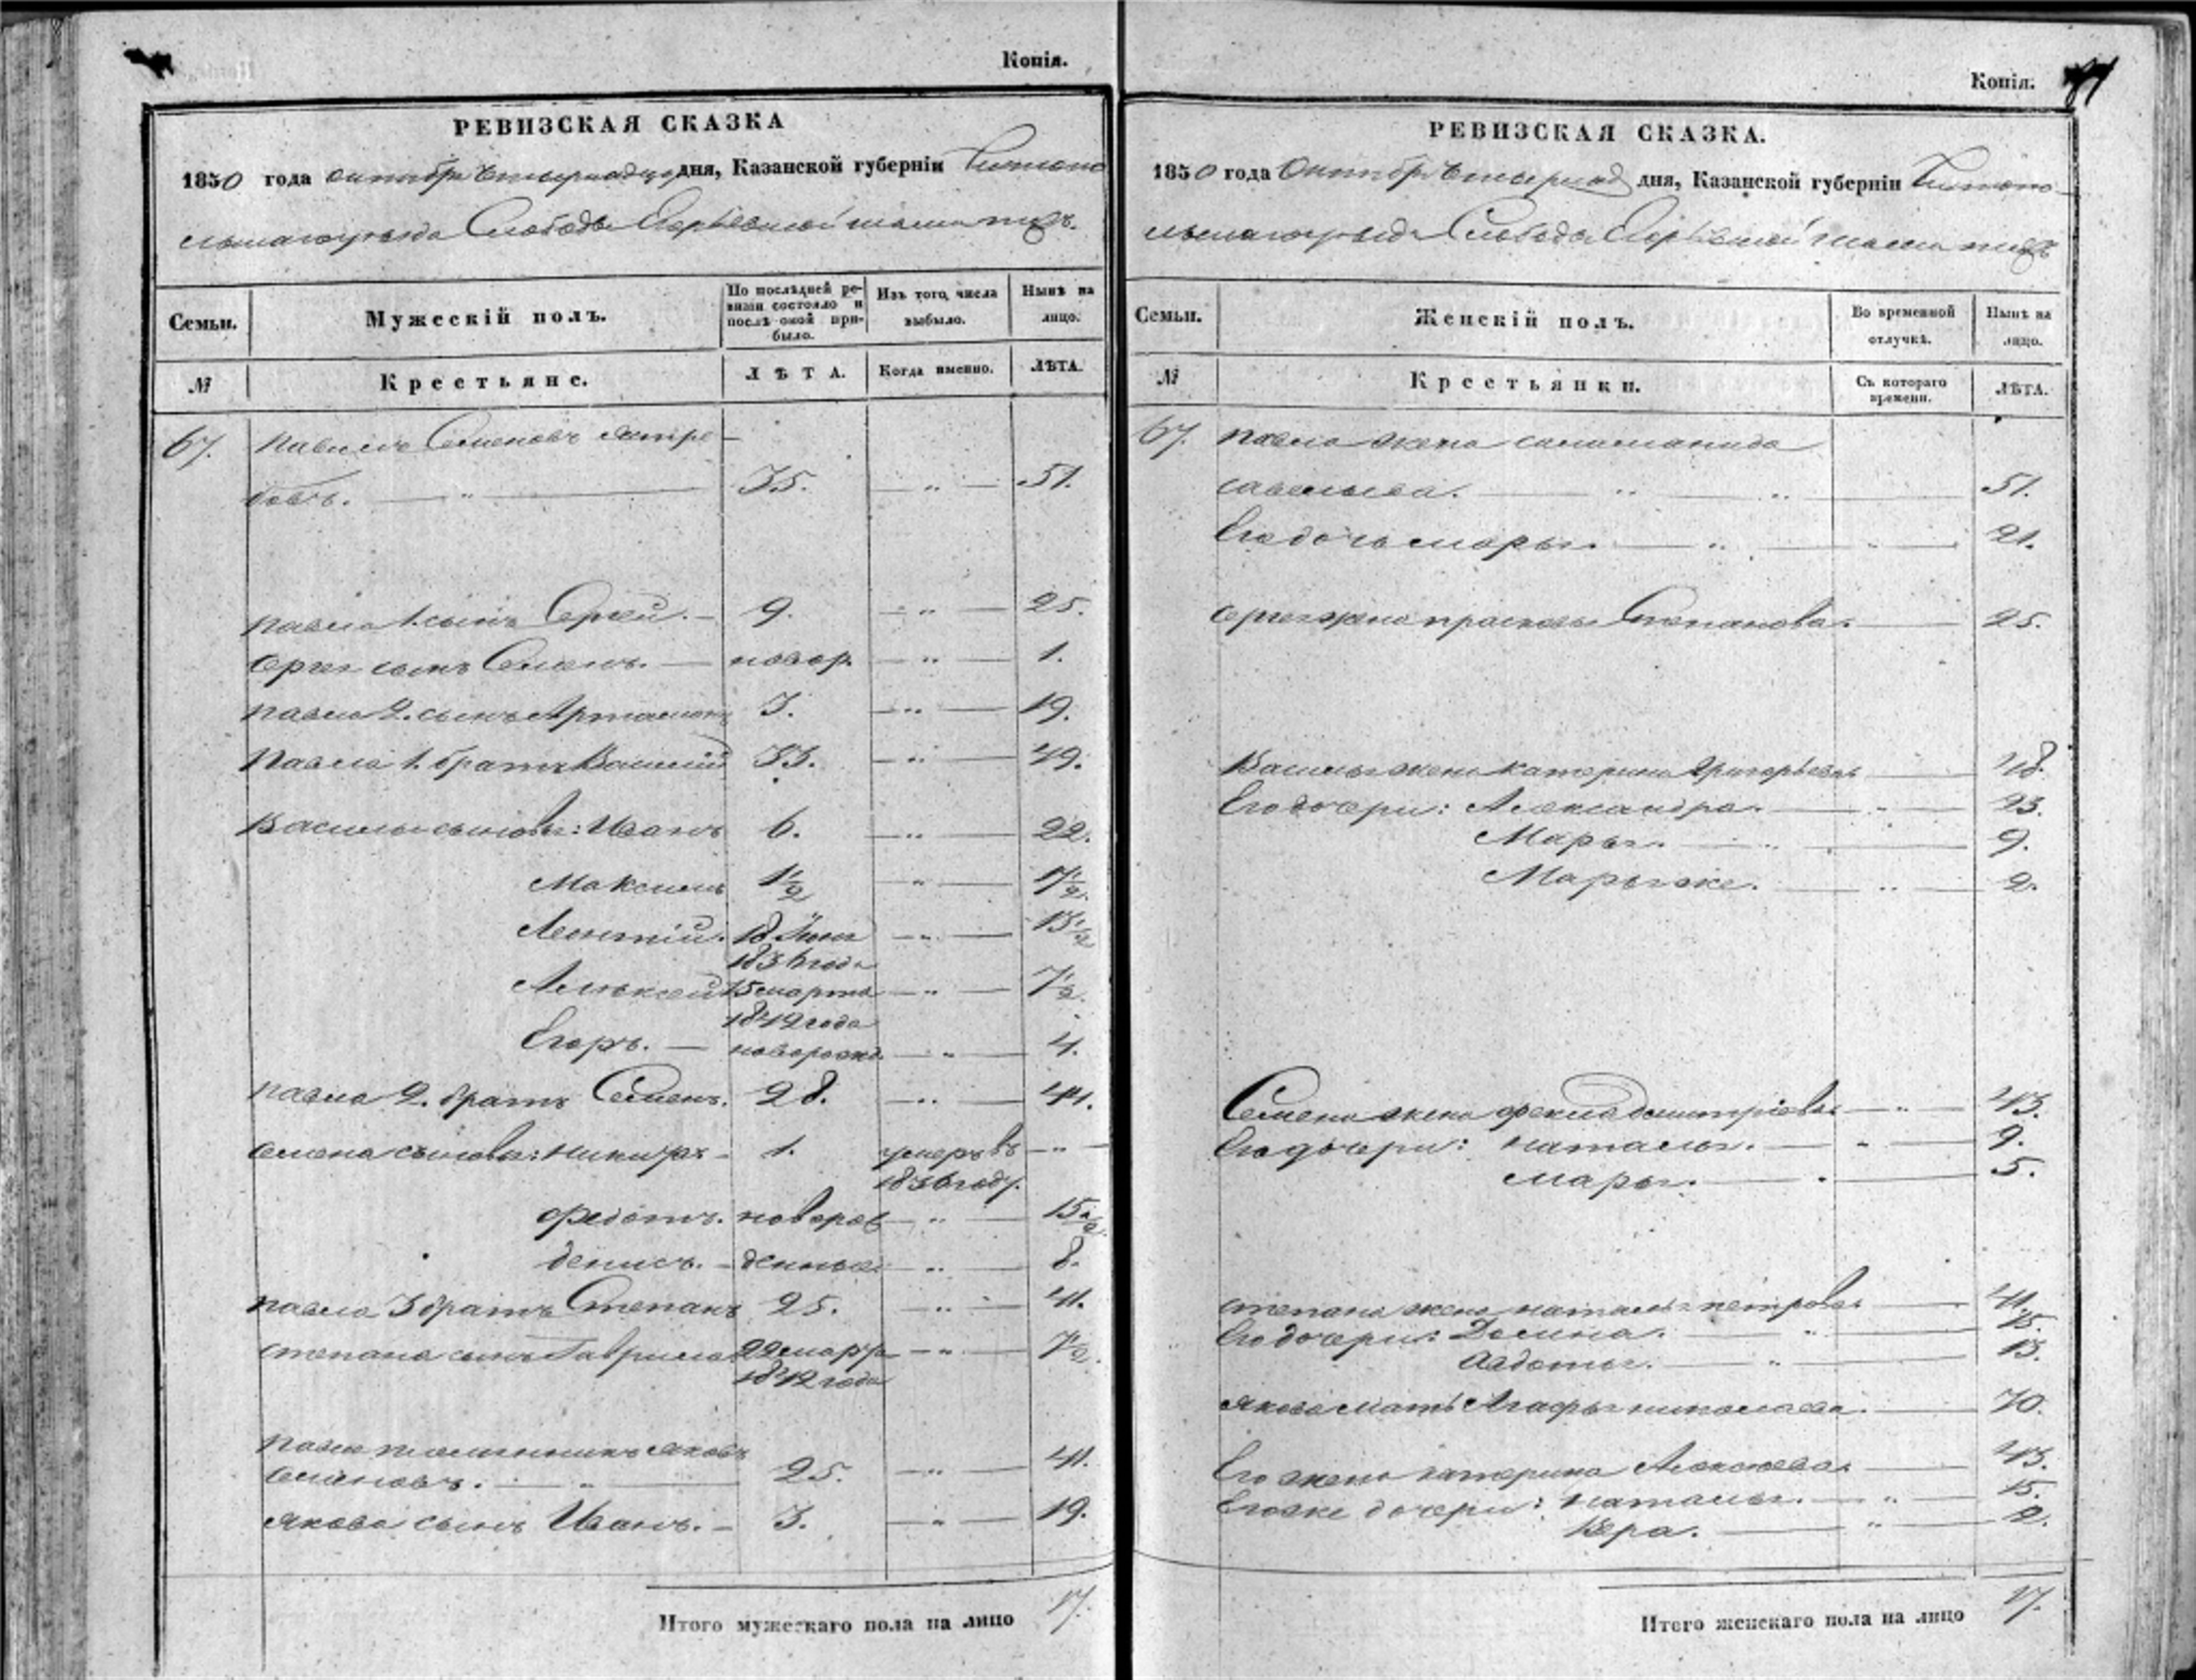 Копія.
РЕВИЗСКАЯ СКАЗКА
1850 года октября дня, Казанской губерніи Чистопо
льскаго уѣзда Слободы Екорьевской
Семьи. Мужескій полъ. По послѣдней ревизіи состояло и послѣ оной прибыло. Изъ того числа выбыло. Нынѣ на лицо.
№ Крестьяне. ЛѢТА. Когда именно. ЛѢТА.
67. Павелъ Семеновъ Ястре
бовъ. — „ — 35. — „ — 51.
Павла 1. сынъ Сергей. — 9. — „ — 25.
Сергея сынъ Семенъ. — новор. — „ — 1.
Павла 2. сынъ Артамонъ 3. — „ — 19.
Павла 1. братъ Василій 33. — „ — 49.
Василья сыновья: Иванъ 6. — „ — 22.
Максимъ 1 1/2 — „ — 17 1/2.
Леонтій. 18 Июня — „ — 13 1/2
1836 года
Алексей 15 марта — „ — 7 1/2.
1842 года
Егоръ. — новорожд. — „ — 4.
Павла 2. братъ Семенъ. 28. — „ — 44.
Семена сыновья: Никифръ — 1. умеръ въ — „ —
1836 году.
Федотъ. новорож — „ — 15 1/2
денисъ. — денные — „ — 8.
Павла 3 братъ Степанъ 25. — „ — 41.
Степана сынъ Гаврила 22 марта — „ — 7 1/2.
1842 года
Павла племянникъ Яковъ
Семеновъ. — „ — 25. — „ — 41.
Якова сынъ Иванъ. — 3. — „ — 19.
Итого мужескаго пола на лицо 17.
Копія.
РЕВИЗСКАЯ СКАЗКА.
1850 года Октября дня, Казанской губерніи Чистопо
льскаго уѣзда Слободы Екорьевской
Семьи. Женскій полъ. Во временной отлучкѣ. Нынѣ на лицо.
№ Крестьянки. Съ котораго времени. ЛѢТА.
67. Павла жена саломанида
савельева. — „ — „ — 51.
Его дочь марья. — „ — „ — 21.
Сергея жена прасковья Степанова. — 25.
Василья жена катерина Григорьева — 48.
Его дочери: Александра. — „ — 23.
Марья. — „ — 9.
Марья же. — „ — 2.
Семена жена фекла дмитріева — „ — 43.
Его дочери: наталья. — „ — 9.
марья. — „ — 5.
степана жена наталья петрова — 41.
Его дочери: Домна. — „ — 15.
Авдотья. — „ — 13.
Якова мать Агафья николаева. — 70.
Его жена катерина Алексеева. — 43.
Его же дочери: наталья. — „ — 15.
Вера. — „ — 2.
Итого женскаго пола на лицо 17.